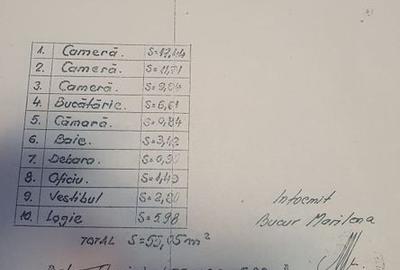 1. Cameră. S=17,44
2. Cameră. S=11,81
3. Cameră. S=9,84
4. Bucătărie. S=6,61
5. Cămară. S=0,84
6. Baie. S=3,42
7. Debara. S=0,90
8. Oficiu. S=1,49
9. Vestibul S=2,80
10. Logie S=5.98
TOTAL S=55,05 m²
Intocmit
Bucur Marilena